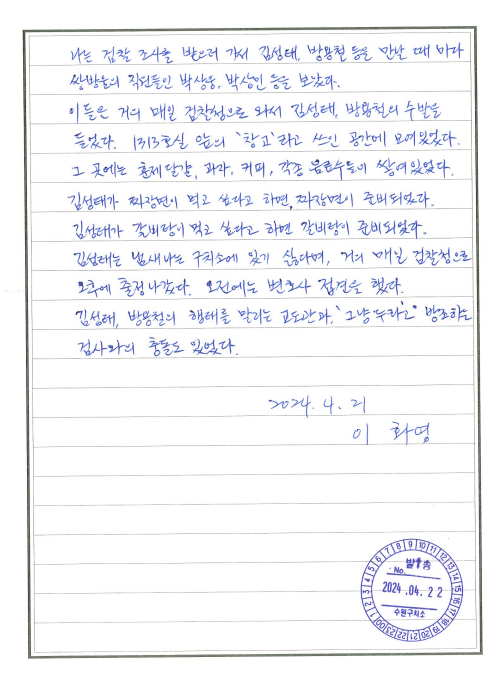 나는 검찰 조사를 받으러 가서 김성태, 방용철 등을 만날 때 마다
쌍방울의 직원들인 박상웅, 박상민 등을 보았다.
이들은 거의 매일 검찰청으로 와서 김성태, 방용철의 수발을
들었다. 1313호실 앞의 '창고'라고 쓰인 공간에 모여있었다.
그 곳에는 훈제달걀, 과자, 커피, 각종 음료수등이 쌓여있었다.
김성태가 짜장면이 먹고 싶다고 하면, 짜장면이 준비되었다.
김성태가 갈비탕이 먹고 싶다고 하면 갈비탕이 준비되었다.
김성태는 냄새나는 구치소에 있기 싫다며, 거의 매일 검찰청으로
오후에 출정나갔다. 오전에는 변호사 접견을 했다.
김성태, 방용철의 행태를 말리는 교도관과, "그냥 두라고" 방조하는
검사와의 충돌도 있었다.
2024. 4. 21
이 화영
No.
2024 .04. 2 2
수원구치소